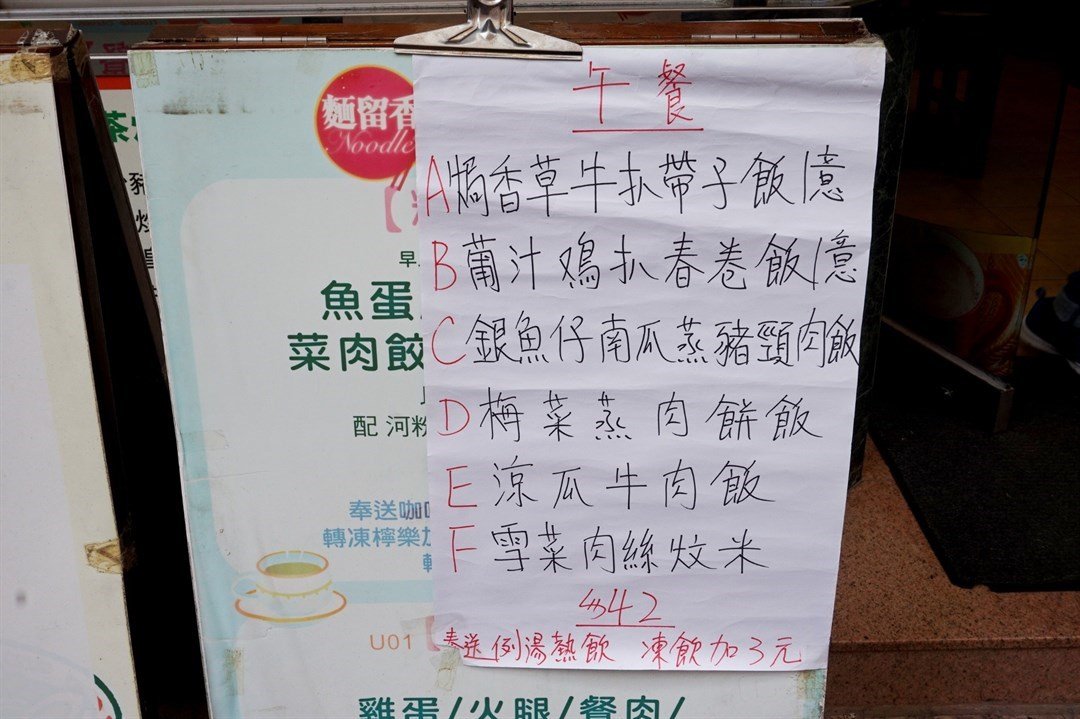 午餐
A焗香草牛扒帶子飯/意
B葡汁鳮扒春卷飯/意
C銀魚仔南瓜蒸豬頸肉飯
D梅菜蒸肉餅飯
E涼瓜牛肉飯
F雪菜肉絲炆米
$42
奉送例湯熱飲 凍飲加3元
麵留香
Noodle
早
魚蛋
菜肉餃
配 河粉
奉送咖
轉凍檸樂加
U01【
雞蛋/火腿/餐肉/
茶
豬